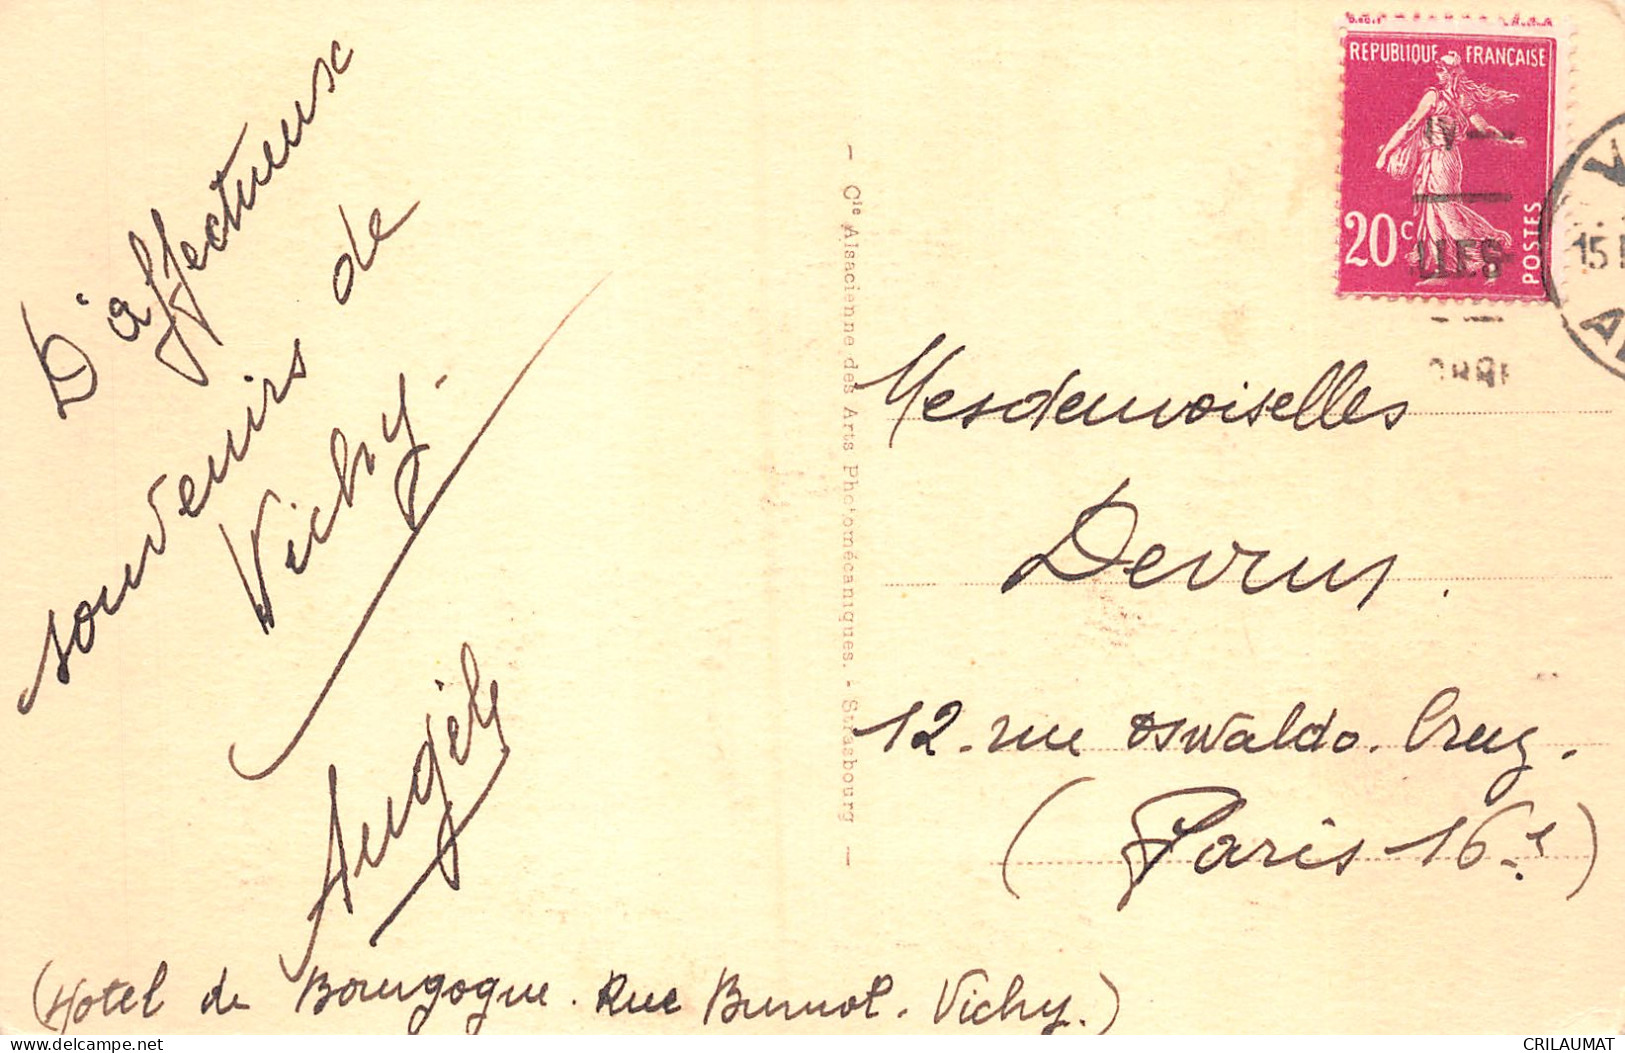 D'affectueux
souvenirs de
Vichy.
Angèle
(Hotel de Bourgogne. Rue Burnol. Vichy.)
— Cie Alsacienne des Arts Photomécaniques. - Strasbourg —
REPUBLIQUE FRANÇAISE
20c
POSTES
IV
LLES
15
Mesdemoiselles
Devrus.
12. rue Oswaldo. Cruz.
(Paris 16e)
CRILAUMAT